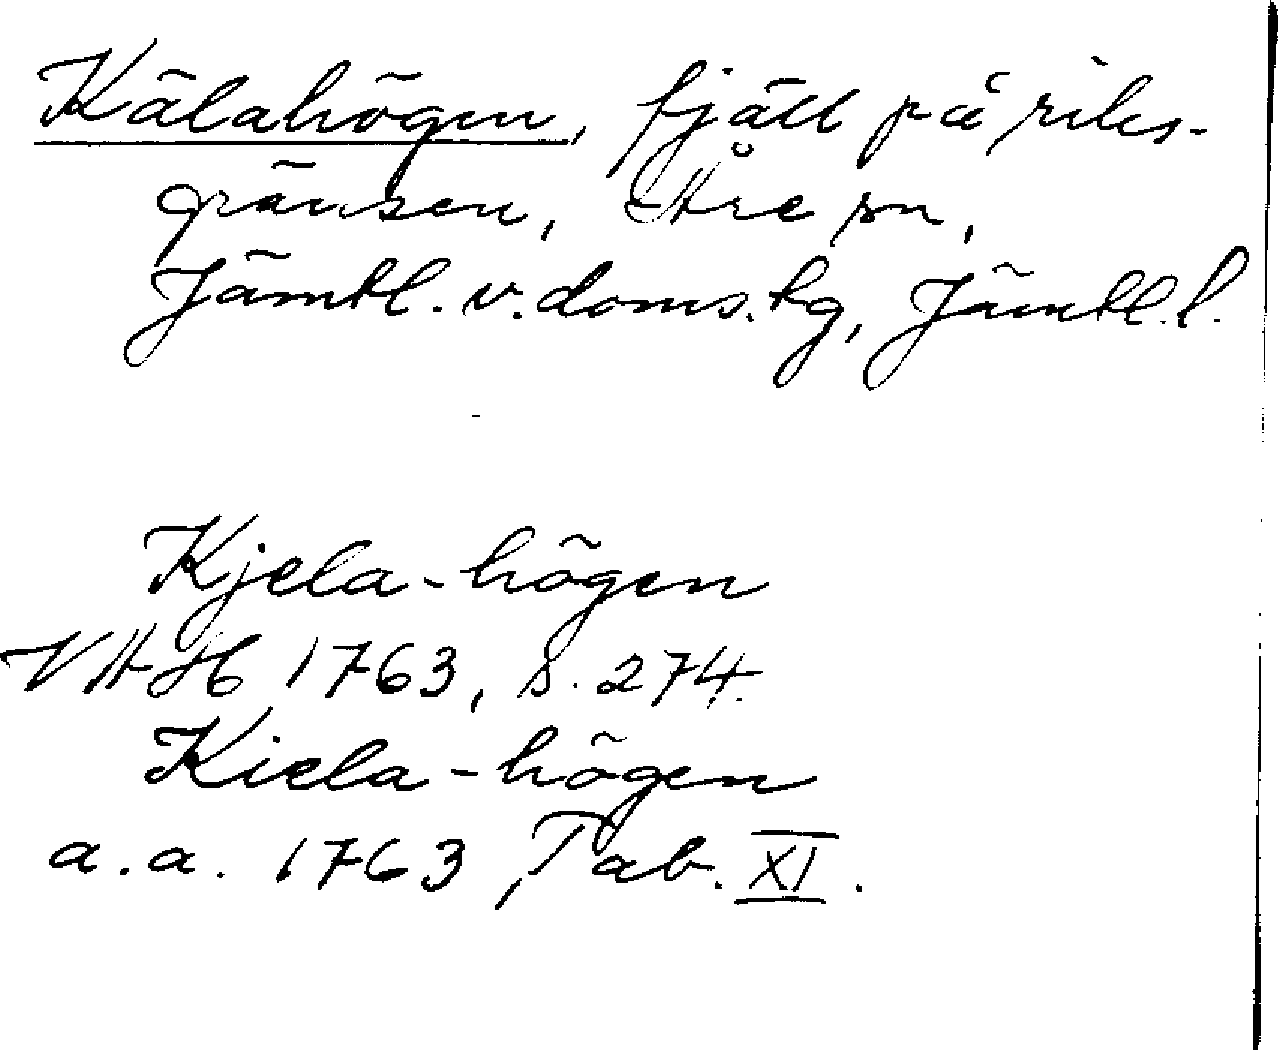 Kälahögen, fjäll på riks-
gränsen, Åre sn,
Jämtl. v. doms. tg, Jämtl. l.
Kjela-högen
VAH 1763, s. 274.
Kiela-högen
a. a. 1763, Tab. XI.